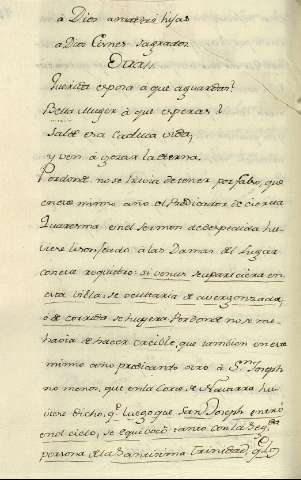 à Dios amadas hijas
a Dios Cisnes sagrados
Otra
Querida esposa à que aguardas?
Bella Muger à que esperas?
Salde esa caduca vida,
y ven à gozar la eterna.
Pordonde no se havia de tener por falso, que
en este mismo año el Predicador de cierta
Quaresma en el sermon de despedida hu-
viese lisonjeado à las Damas del Lugar
con este requiebro: si venus se apareciera en
esta villa, se ocultaria de avergonzada,
ò de corrida se huyera Pordonde no se me
havia de hacer creible, que tambien en este
mismo año predicando otro à Sn. Joseph
no menos, que en la Corte de Navarra hu-
viese dicho, qe. luego que San Joseph entrò
en el cielo, se equivocò tanto con la segda.
persona de la Santisima Trinidad, qe. los